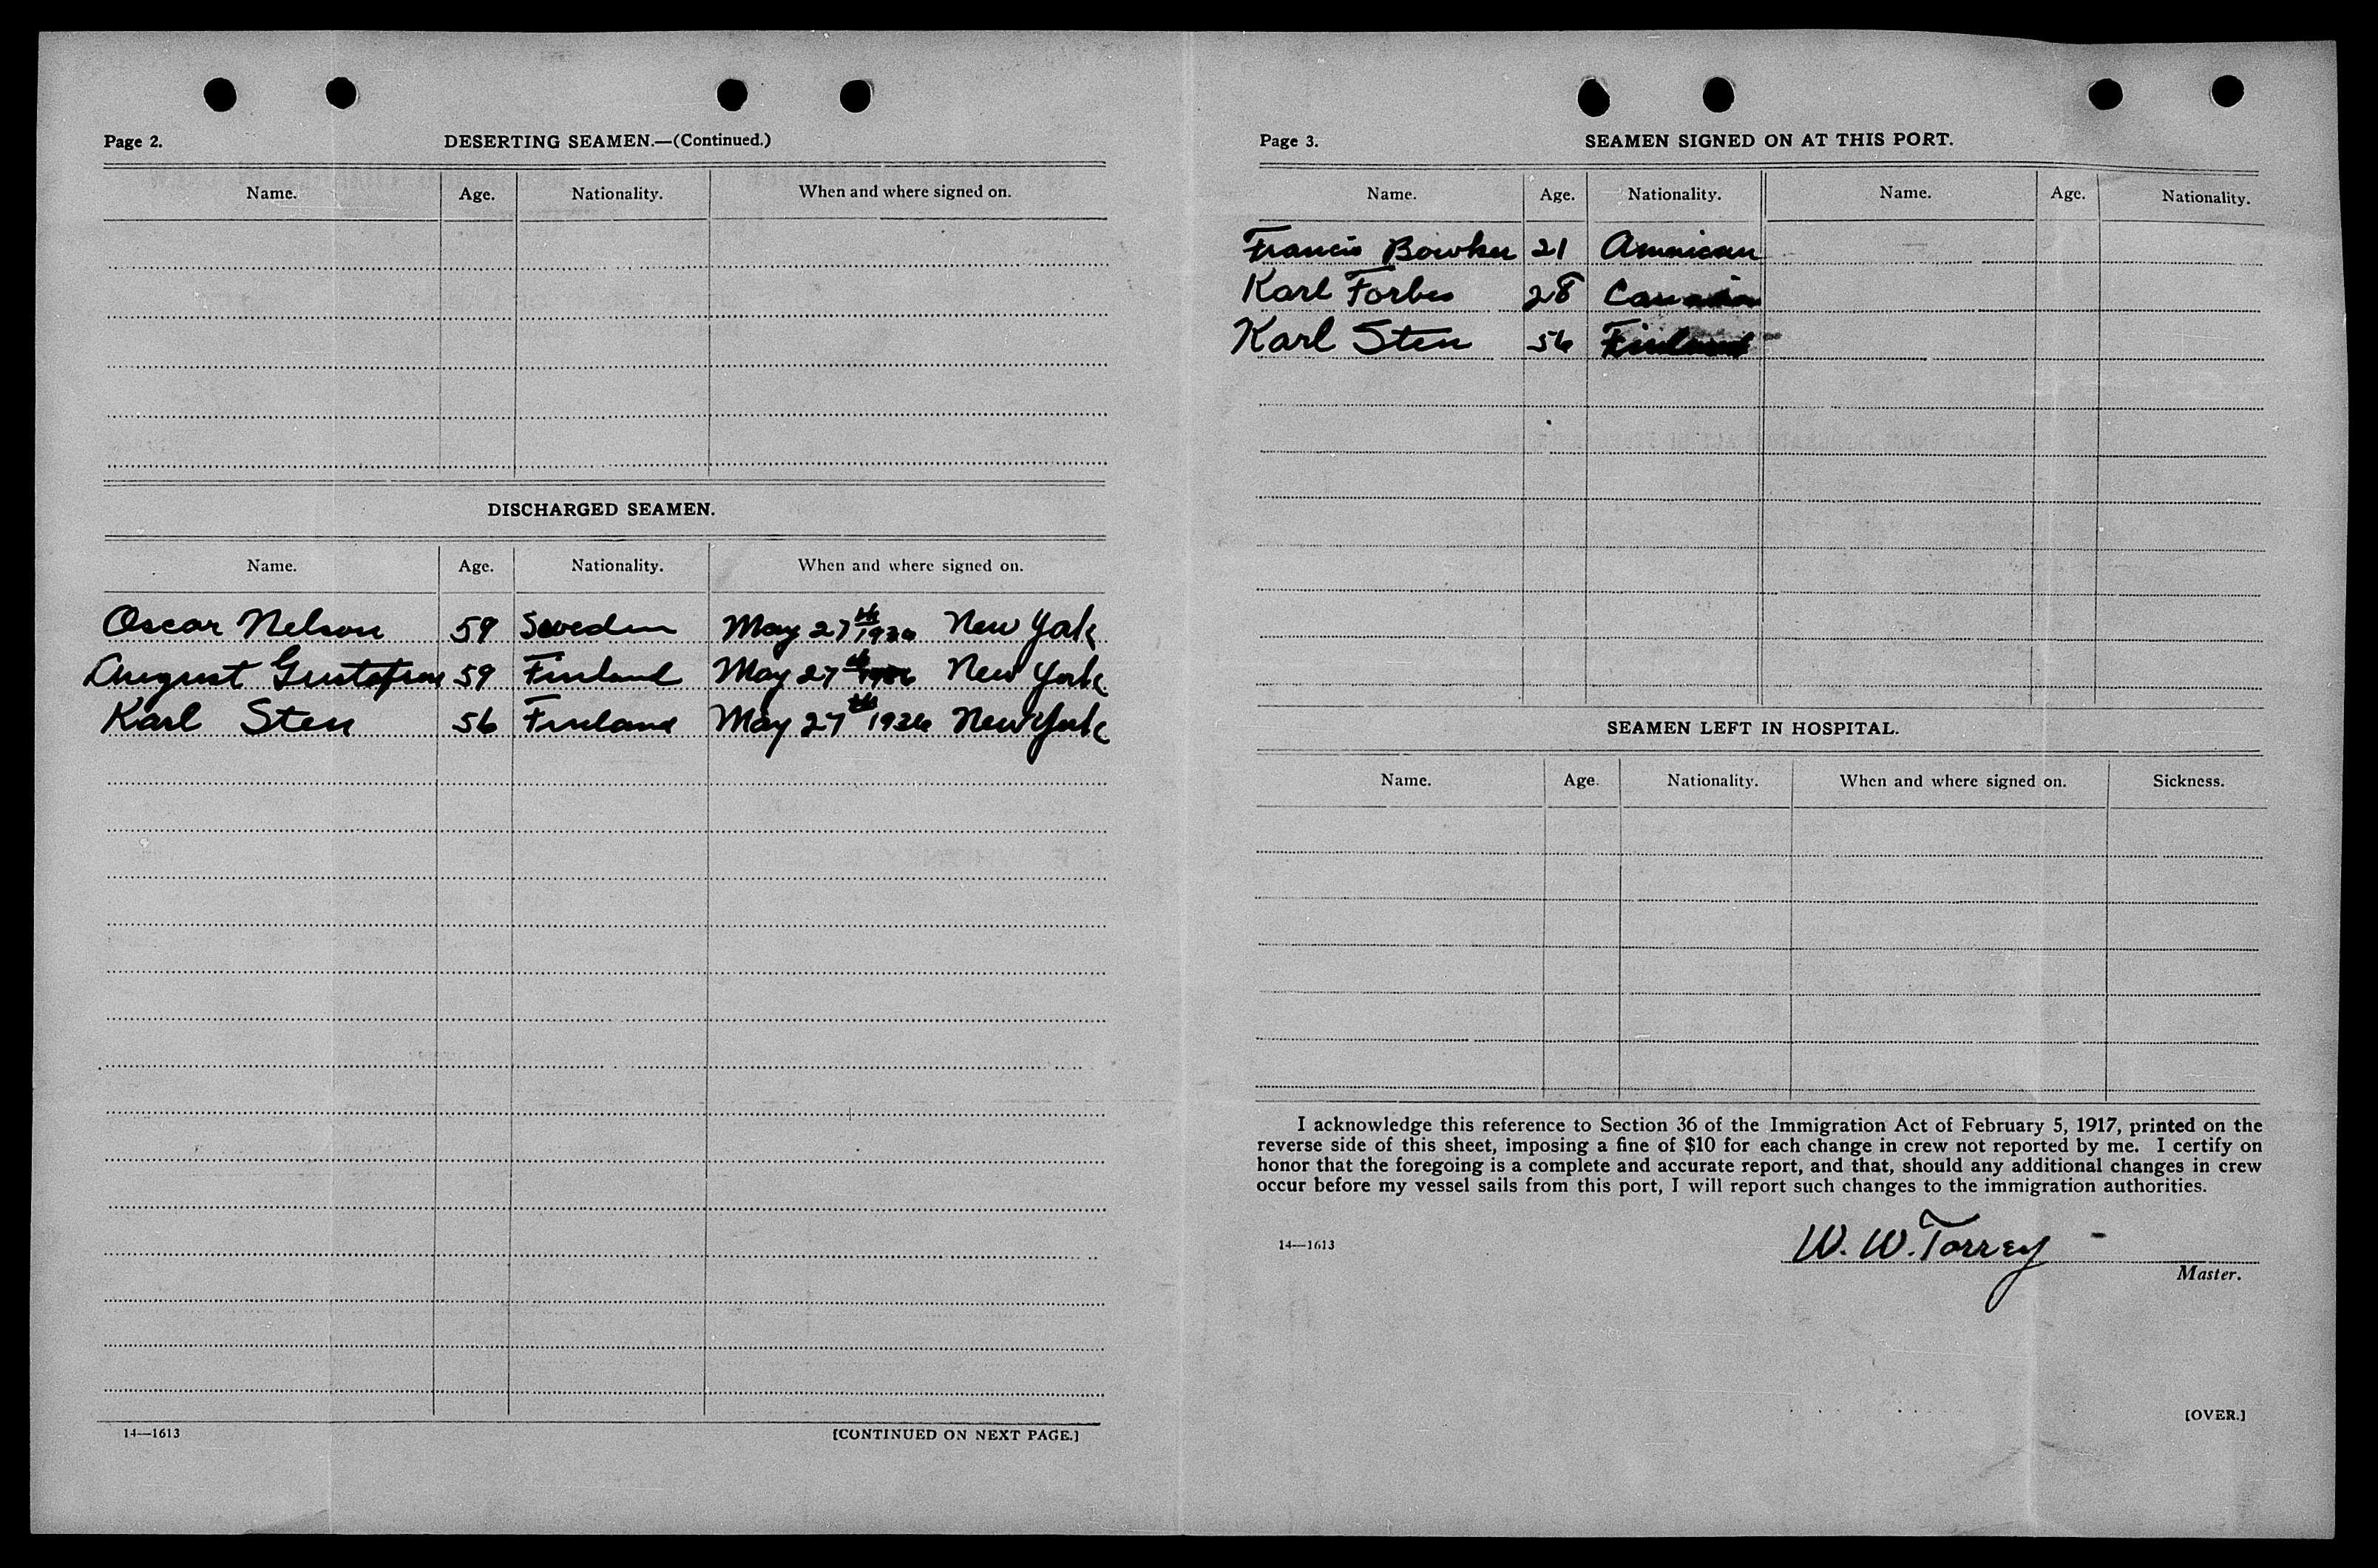 Page 2.
DESERTING SEAMEN.—(Continued.)
Name. Age. Nationality. When and where signed on.
DISCHARGED SEAMEN.
Name. Age. Nationality. When and where signed on.
Oscar Nelson 59 Sweden May 27th 1936 New York
August Gustafson 59 Finland May 27th New York
Karl Sten 56 Finland May 27th 1936 New York
14—1613
[CONTINUED ON NEXT PAGE.]
Page 3.
SEAMEN SIGNED ON AT THIS PORT.
Name. Age. Nationality. Name. Age. Nationality.
Francis Bowker 21 American
Karl Forbes 28
Karl Sten 56 Finland
SEAMEN LEFT IN HOSPITAL.
Name. Age. Nationality. When and where signed on. Sickness.
I acknowledge this reference to Section 36 of the Immigration Act of February 5, 1917, printed on the
reverse side of this sheet, imposing a fine of $10 for each change in crew not reported by me. I certify on
honor that the foregoing is a complete and accurate report, and that, should any additional changes in crew
occur before my vessel sails from this port, I will report such changes to the immigration authorities.
14—1613
W. W. Torrey
Master.
[OVER.]